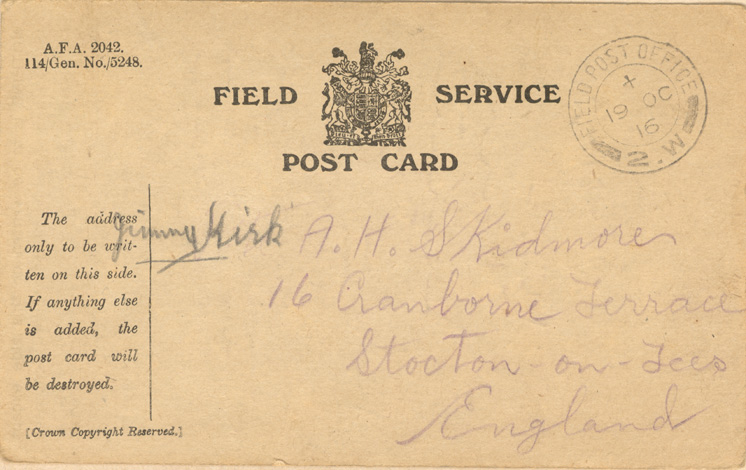 A.F.A. 2042.
114/Gen. No./5248.
FIELD SERVICE
POST CARD
FIELD POST OFFICE
X
19 OC
16
2.W
The address
only to be writ-
ten on this side.
If anything else
is added, the
post card will
be destroyed.
[Crown Copyright Reserved.]
Jimmy Kirk
A. H. Skidmore
16 Cranborne Terrace
Stocton-on-Tees
England